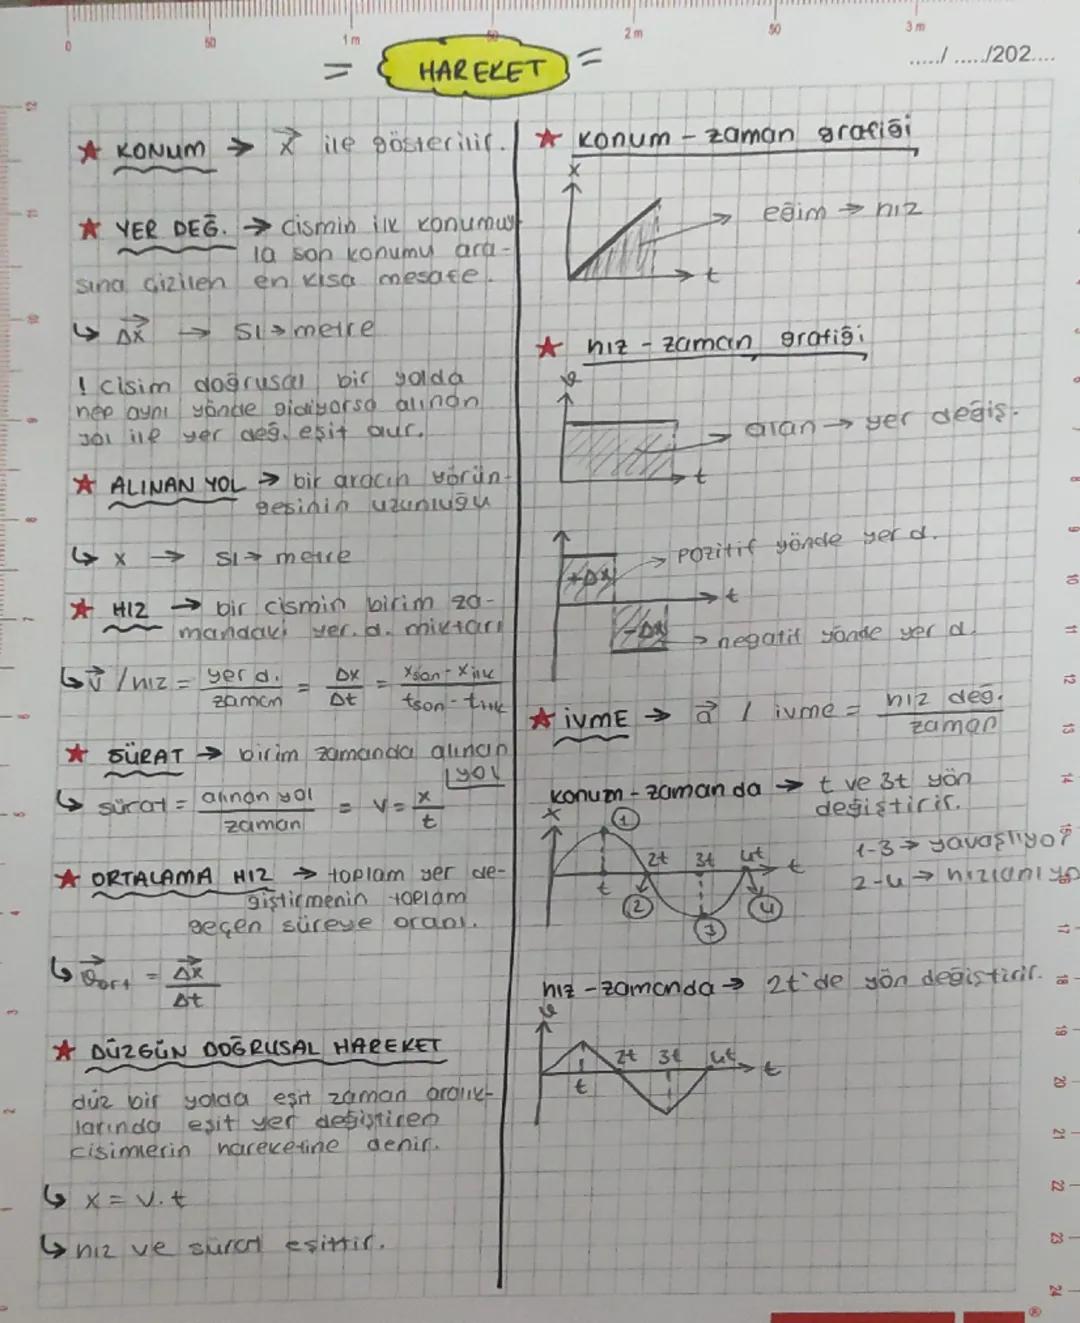 0 50 1m 50 2m 50 3m
= HAREKET =
...../...../202....
★ KONUM → x ile gösterilir.
★ YER DEĞ. → cismin ilk konumuy
la son konumu ara-
sına çizilen en kısa mesafe.
↳ Δx → SI → metre
! cisim doğrusal bir yolda
hep aynı yönde gidiyorsa alınan
yol ile yer değ. eşit olur.
★ ALINAN YOL → bir aracın yörün-
gesinin uzunluğu
↳ x → SI → metre
★ HIZ → bir cismin birim za-
mandaki yer.d. miktarı
↳ v / hız = yer d. / zaman = Δx / Δt = xson - xilk / tson - tilk
★ SÜRAT → birim zamanda alınan
yol
↳ sürat = alınan yol / zaman = v = x / t
★ ORTALAMA HIZ → toplam yer de-
ğiştirmenin toplam
geçen süreye oranı.
↳ ϑort = Δx / Δt
★ DÜZGÜN DOĞRUSAL HAREKET
düz bir yolda eşit zaman aralık-
larında eşit yer değiştiren
cisimlerin hareketine denir.
↳ x = v.t
↳ hız ve sürat eşittir.
★ konum - zaman grafiği
x
eğim → hız
t
★ hız - zaman grafiği
ϑ
alan → yer değiş.
t
+Δx → pozitif yönde yer d.
t
-Δx → negatif yönde yer d.
★ İVME → a / ivme = hız değ. / zaman
konum - zamanda → t ve 3t yön
değiştirir.
x 1
t 2t 3t 4t t
2 3 4
1-3 → yavaşlıyor
2-4 → hızlanıyo
hız - zamanda → 2t'de yön değiştirir.
ϑ
t 2t 3t 4t t